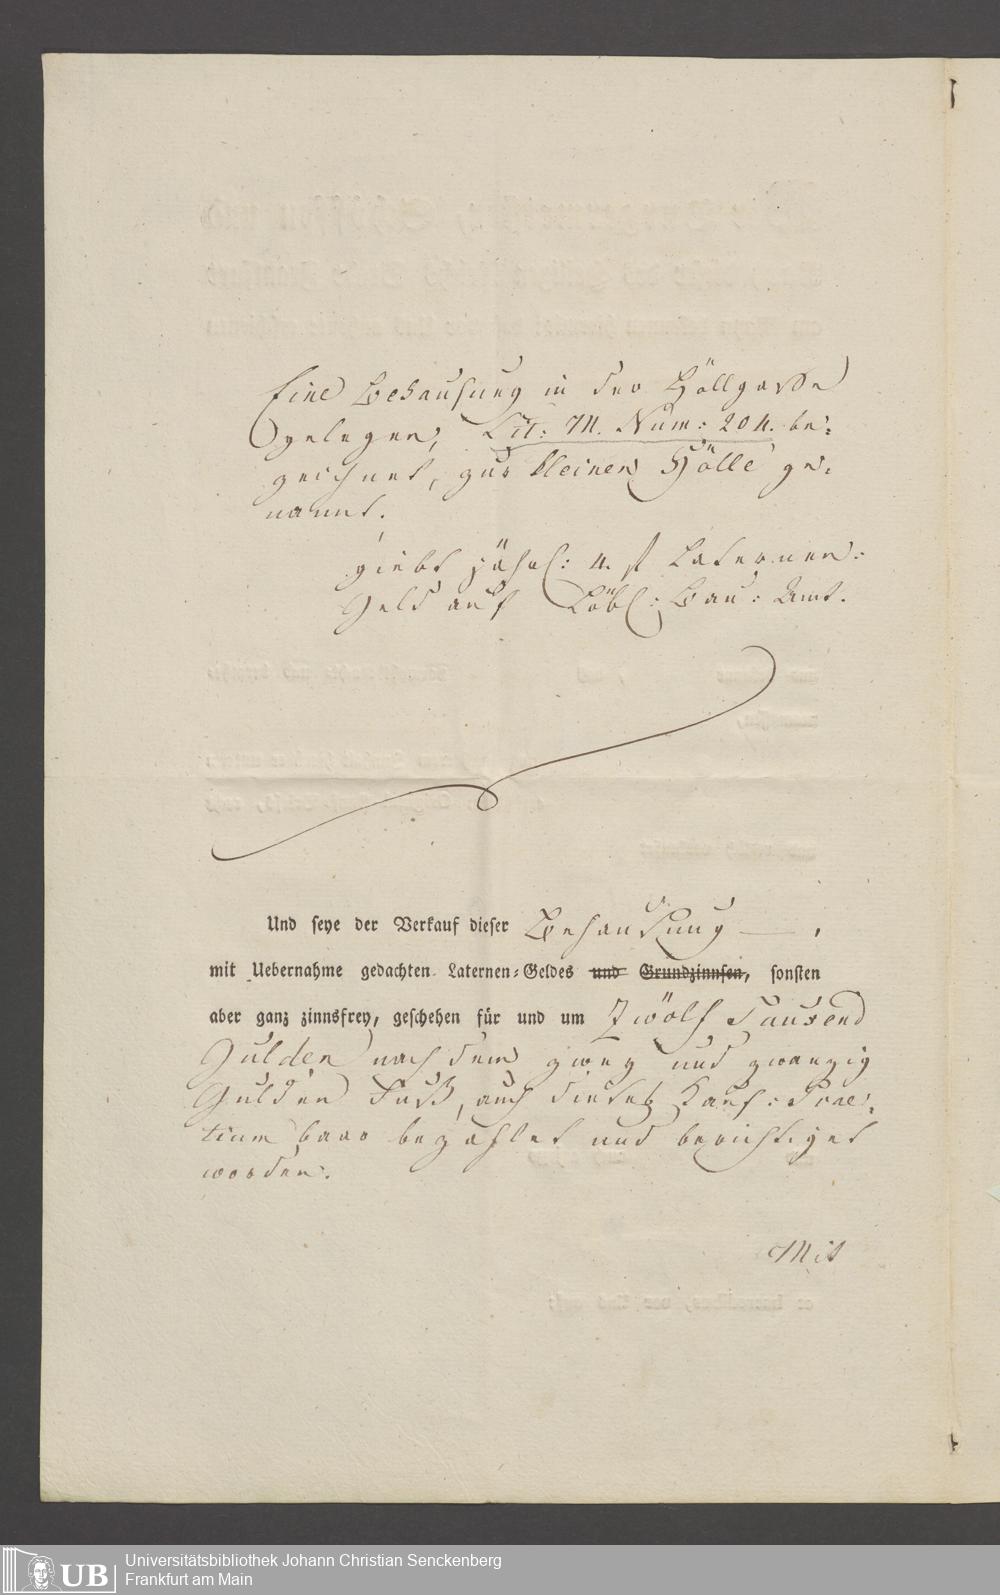 Eine Behausung in der Höllgasse
gelegen, Lit: M. Num: 204. be-
zeichnet, zur kleinen Hölle ge-
nannt.
giebt jährl: 4. f Laternen-
Geld auf Löbl: Bau-Amt.
Und seye der Verkauf dieser Behausung — ,
mit Uebernahme gedachten Laternen-Geldes und Grundzinnsen, sonsten
aber ganz zinnsfrey, geschehen für und um Zwölf Tausend
Gulden nach dem zwey und zwanzig
Gulden Fuß, auch dieses Kauf-Prae-
tium baar bezahlet und berichtiget
worden.
Mit
UB
Universitätsbibliothek Johann Christian Senckenberg
Frankfurt am Main